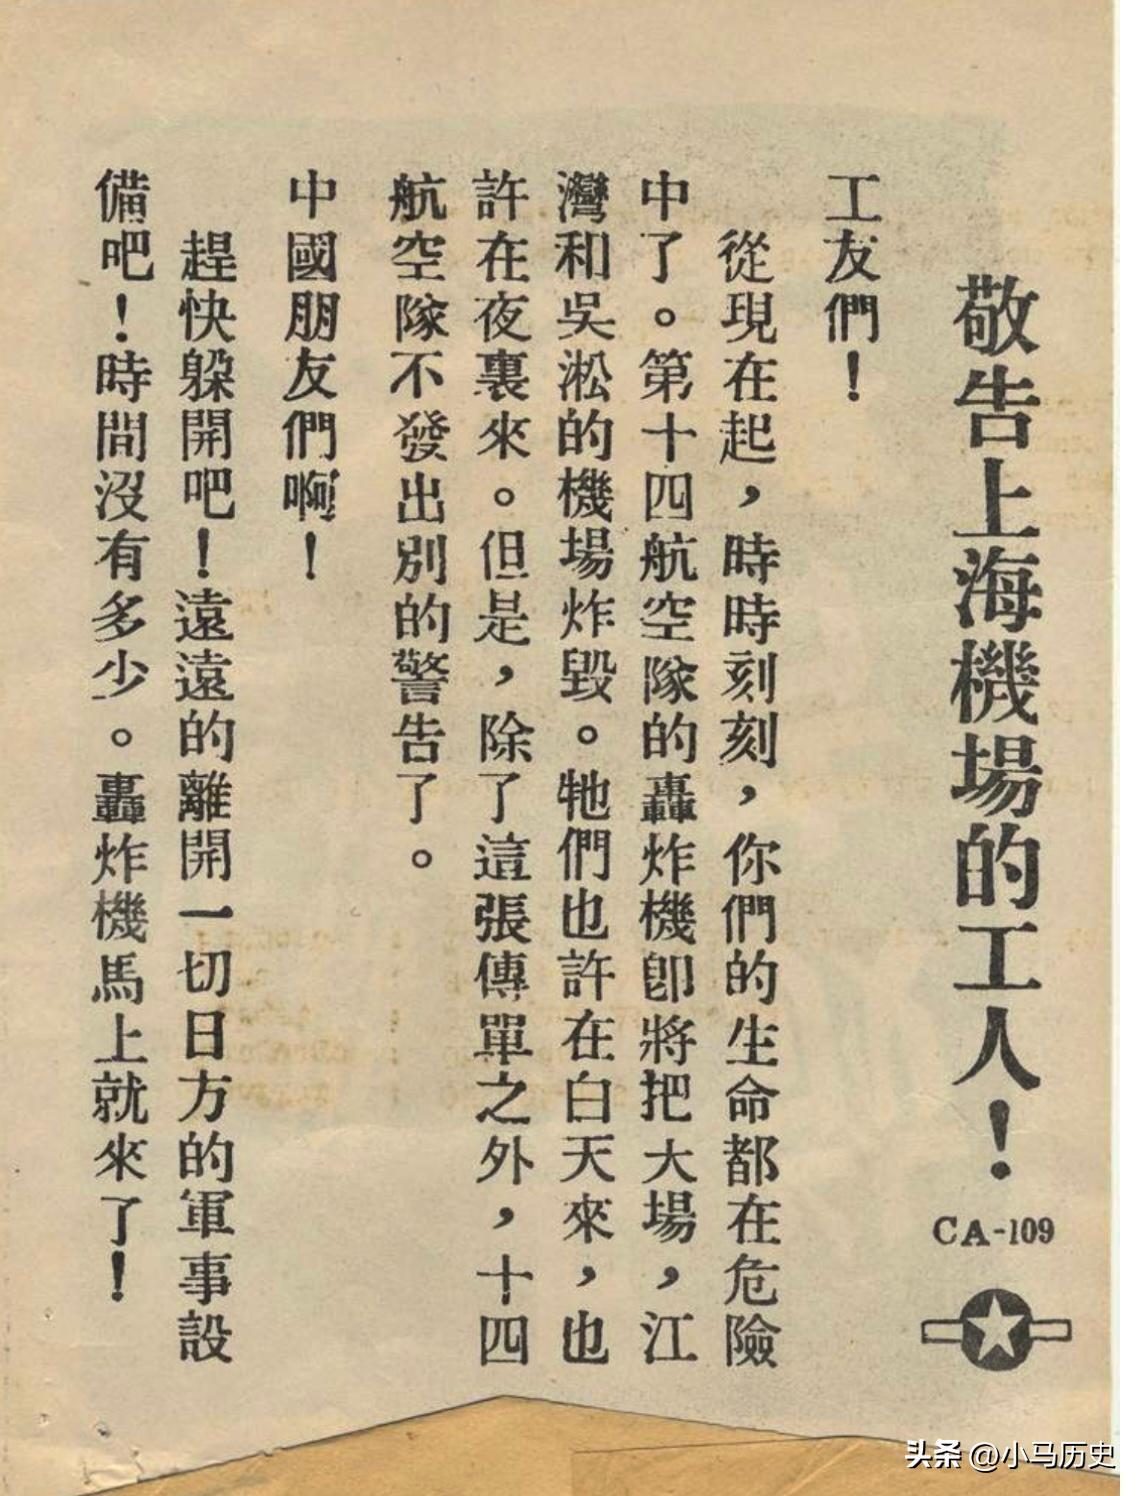 敬告上海機場的工人！
CA-109
工友們！
從現在起，時時刻刻，你們的生命都在危險
中了。第十四航空隊的轟炸機卽將把大場，江
灣和吳淞的機場炸毀。牠們也許在白天來，也
許在夜裏來。但是，除了這張傳單之外，十四
航空隊不發出別的警告了。
中國朋友們啊！
趕快躲開吧！遠遠的離開一切日方的軍事設
備吧！時間沒有多少。轟炸機馬上就來了！
头条 @小马历史